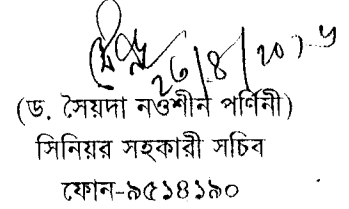 ২৬/৪/২০১৬
(ড. সৈয়দা নওশীন পর্ণিনী)
সিনিয়র সহকারী সচিব
ফোন-৯৫১৪১৯০